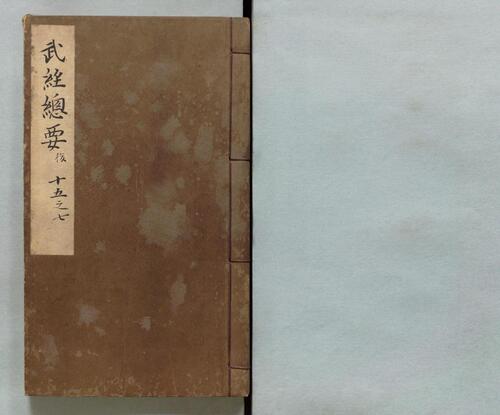 武経總要 後 十五之七